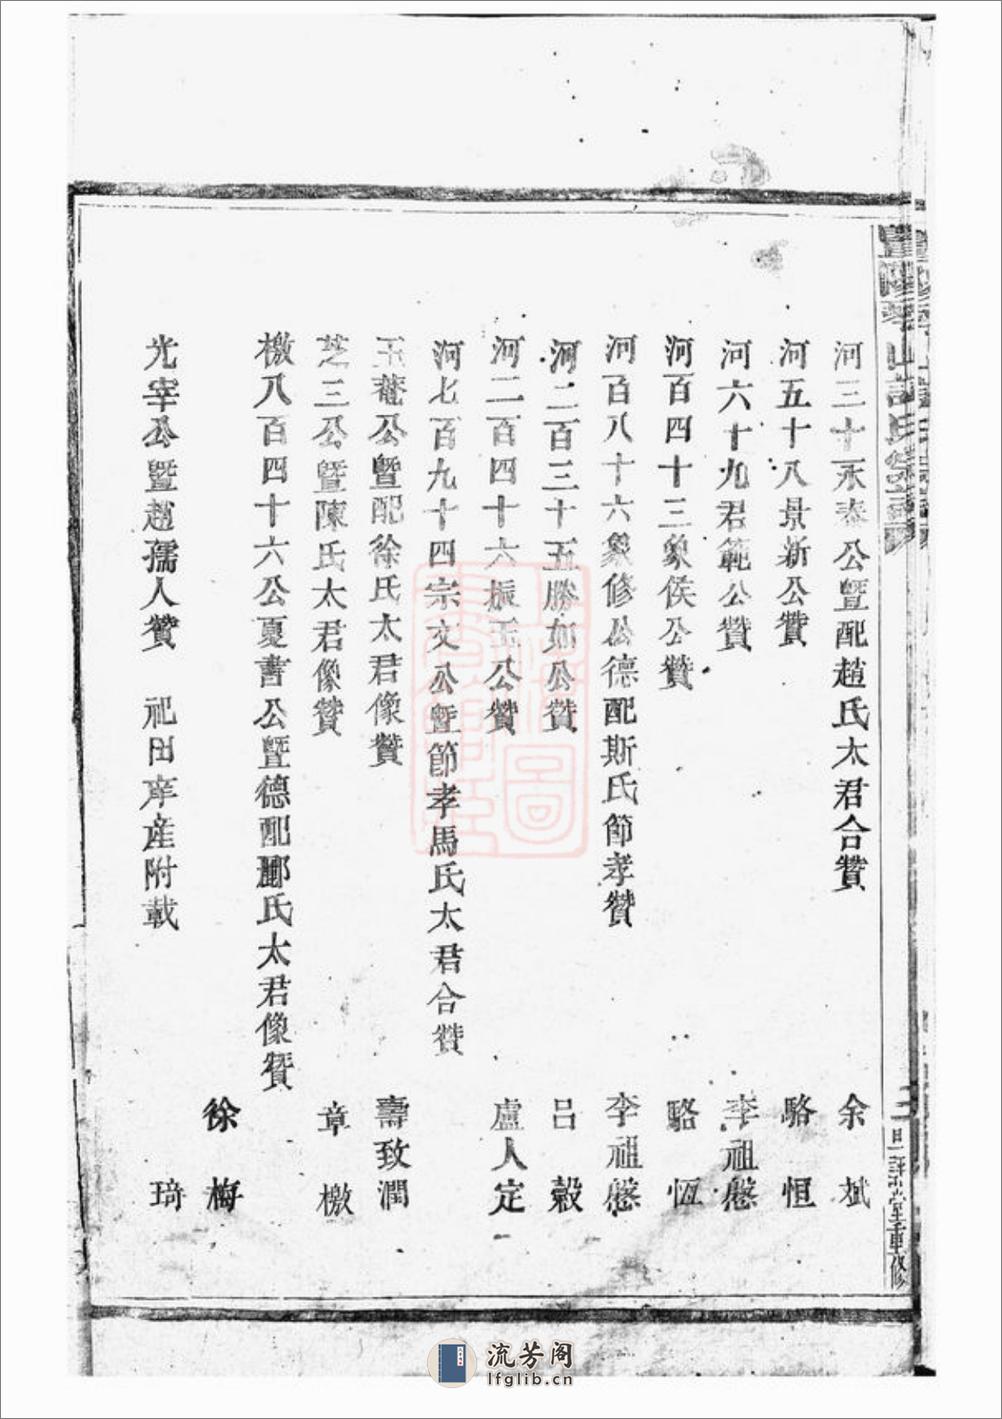 河三十一永泰公暨配趙氏太君合贊 余斌
河五十八景新公贊 駱恒
河六十九君範公贊 李祖慇
河百四十三象侯公贊 駱恆
河百八十六象修公德配斯氏節孝贊 李祖慇
河二百三十五勝如公贊 呂穀
河二百四十六振玉公贊 盧人定
河七百九十四宗文公暨節孝馬氏太君合贊
玉菴公暨配徐氏太君像贊 壽致潤
芝三公暨陳氏太君像贊 章檄
檄八百四十六公夏書公暨德配酈氏太君像贊
徐梅
光宰公暨趙孺人贊 祀田產附載 琦
山 氏宗譜
堂重修
流芳阁
lfglib.cn